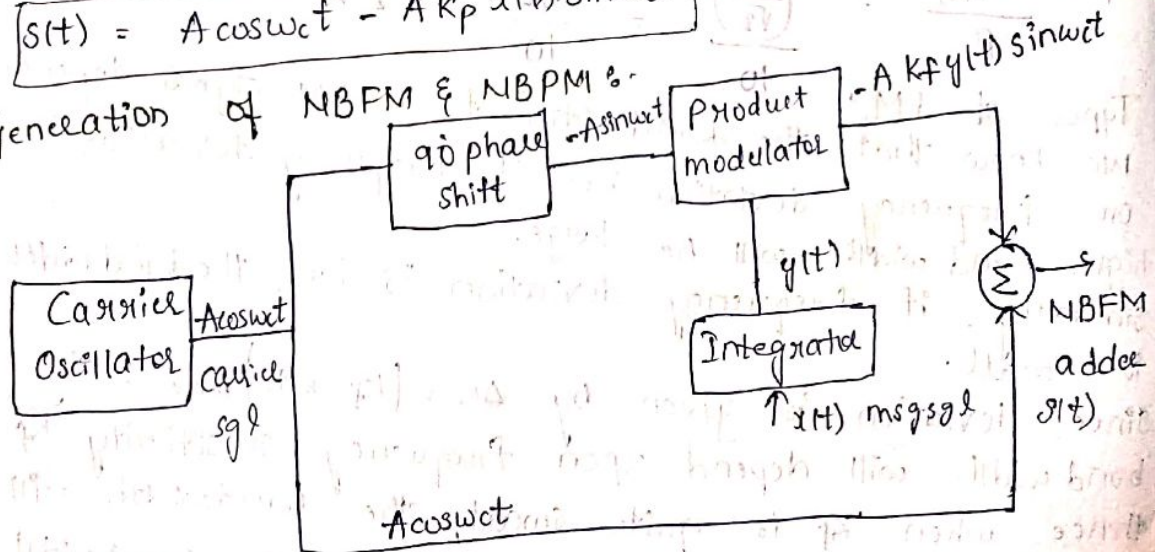 S(t) = A cosωct - A Kp x(t)
enelation of NBFM & NBPM :-
- A Kf y(t) sinωct
90 phase
shift
-Asinωct
Product
modulator
y(t)
Carrier
Oscillator
Acosωct
carrier
sgl
Integrator
↑ x(t) msg sgl
Σ
NBFM
adder
s(t)
Acosωct